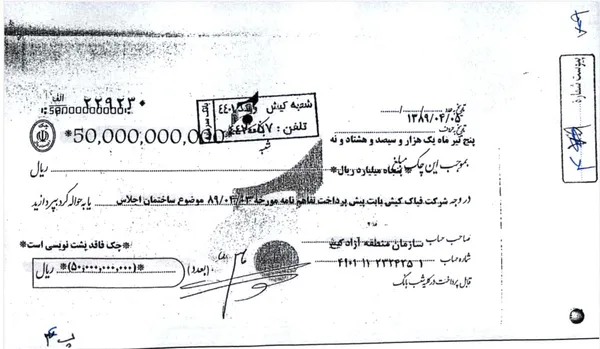 الف ۲۲۹۲۳۰
شعبه کیش
پیوست شماره
تاریخ عدد ..../..../....
۱۳۸۹/۰۴/۰۵
تاریخ حروف
*50,000,000,000*
پنج تیر ماه یک هزار و سیصد و هشتاد و نه
بموجب این چک مبلغ *پنجاه میلیارد ریال* ریال
در وجه شرکت فباک کیش بابت پیش پرداخت تفاهم نامه مورخه ۸۹/۰۳/۰۳ موضوع ساختمان اجلاس یا به حواله کرد بپردازید
صاحب حساب سازمان منطقه آزاد کیش
*چک فاقد پشت نویسی است*
شماره حساب
(بعدد) *(۵۰,۰۰۰,۰۰۰,۰۰۰)* ریال
قابل پرداخت در کلیه شعب بانک